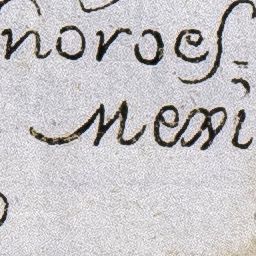 noroes
Mexi